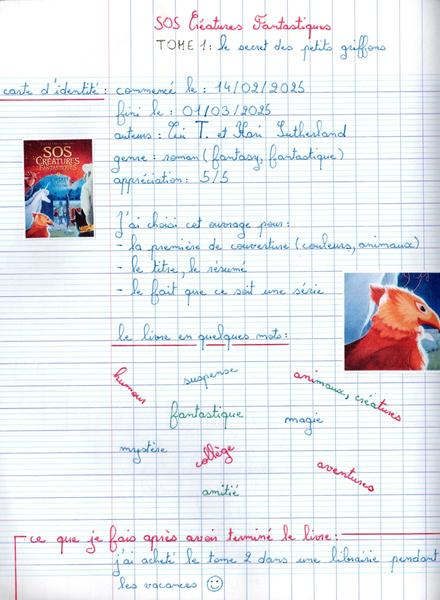 SOS Créatures Fantastiques
TOME 1 : le secret des petits griffons
carte d'identité : commencé le : 14/02/2025
fini le : 01/03/2025
auteurs : Tui T. et Kari Sutherland
genre : roman (fantasy, fantastique)
appréciation : 5/5
SOS
CRÉATURES
FANTASTIQUES
J'ai choisi cet ouvrage pour :
- la première de couverture (couleurs, animaux)
- le titre, le résumé
- le fait que ce soit une série
le livre en quelques mots :
humour
suspense
animaux, créatures
fantastique
magie
mystère
collège
aventures
amitié
ce que je fais après avoir terminé le livre :
j'ai acheté le tome 2 dans une librairie pendant
les vacances ☺